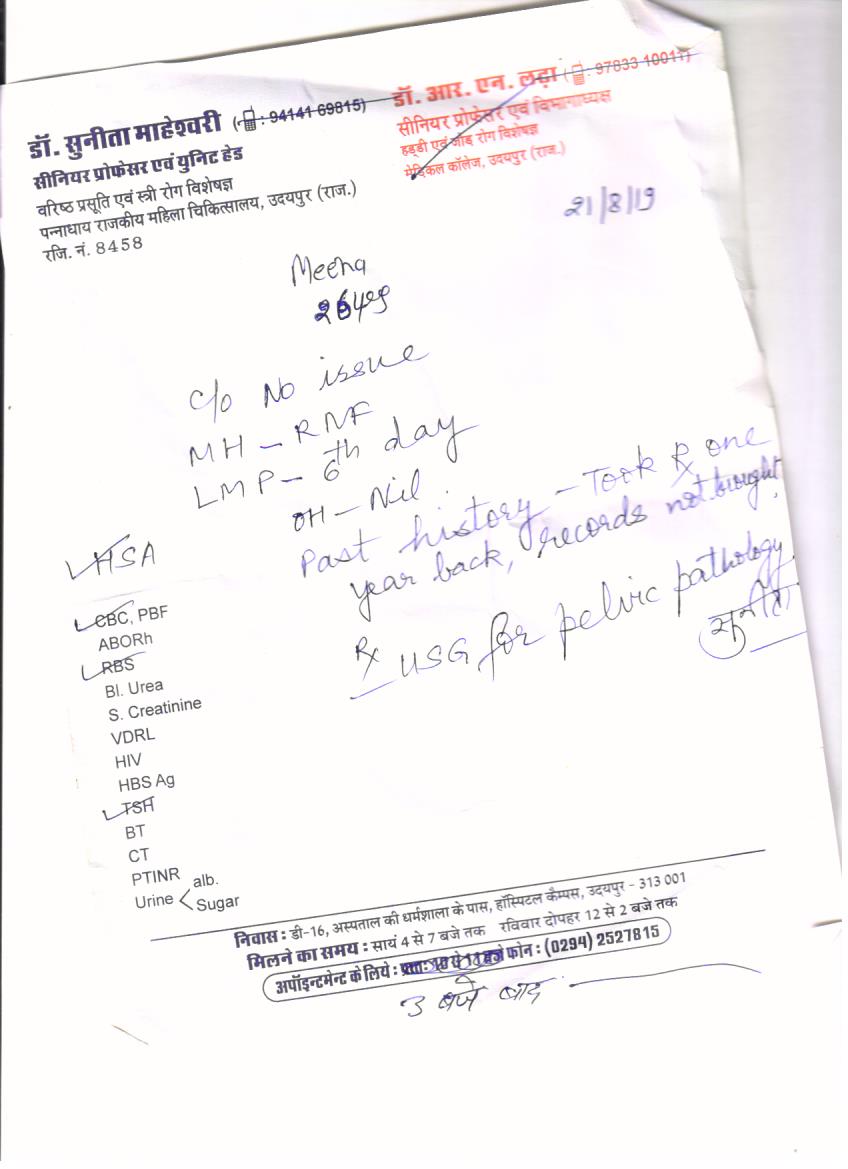 डॉ. सुनीता माहेश्वरी (: 94141 69815)
सीनियर प्रोफेसर एवं युनिट हेड
वरिष्ठ प्रसूति एवं स्त्री रोग विशेषज्ञ
पन्नाधाय राजकीय महिला चिकित्सालय, उदयपुर (राज.)
रजि. नं. 8458
डॉ. आर. एन. लढ़ा (: 97833 10011)
सीनियर प्रोफेसर एवं विभागाध्यक्ष
हड्डी एवं जोड़ रोग विशेषज्ञ
मेडिकल कॉलेज, उदयपुर (राज.)
21/8/19
Meena
c/o No issue
MH - RNF
LMP - 6th day
OH - Nil
Past history - Took Rx one
year back, records not brought.
Rx USG for pelvic pathology
सुनीता
HSA
CBC, PBF
ABORh
RBS
Bl. Urea
S. Creatinine
VDRL
HIV
HBS Ag
TSH
BT
CT
PTINR
Urine < alb.
Sugar
निवास : डी-16, अस्पताल की धर्मशाला के पास, हॉस्पिटल कैम्पस, उदयपुर - 313 001
मिलने का समय : सायं 4 से 7 बजे तक रविवार दोपहर 12 से 2 बजे तक
अपॉइन्टमेन्ट के लिये : प्रातः 10 से 11 बजे फोन : (0294) 2527815
3 बजे बाद